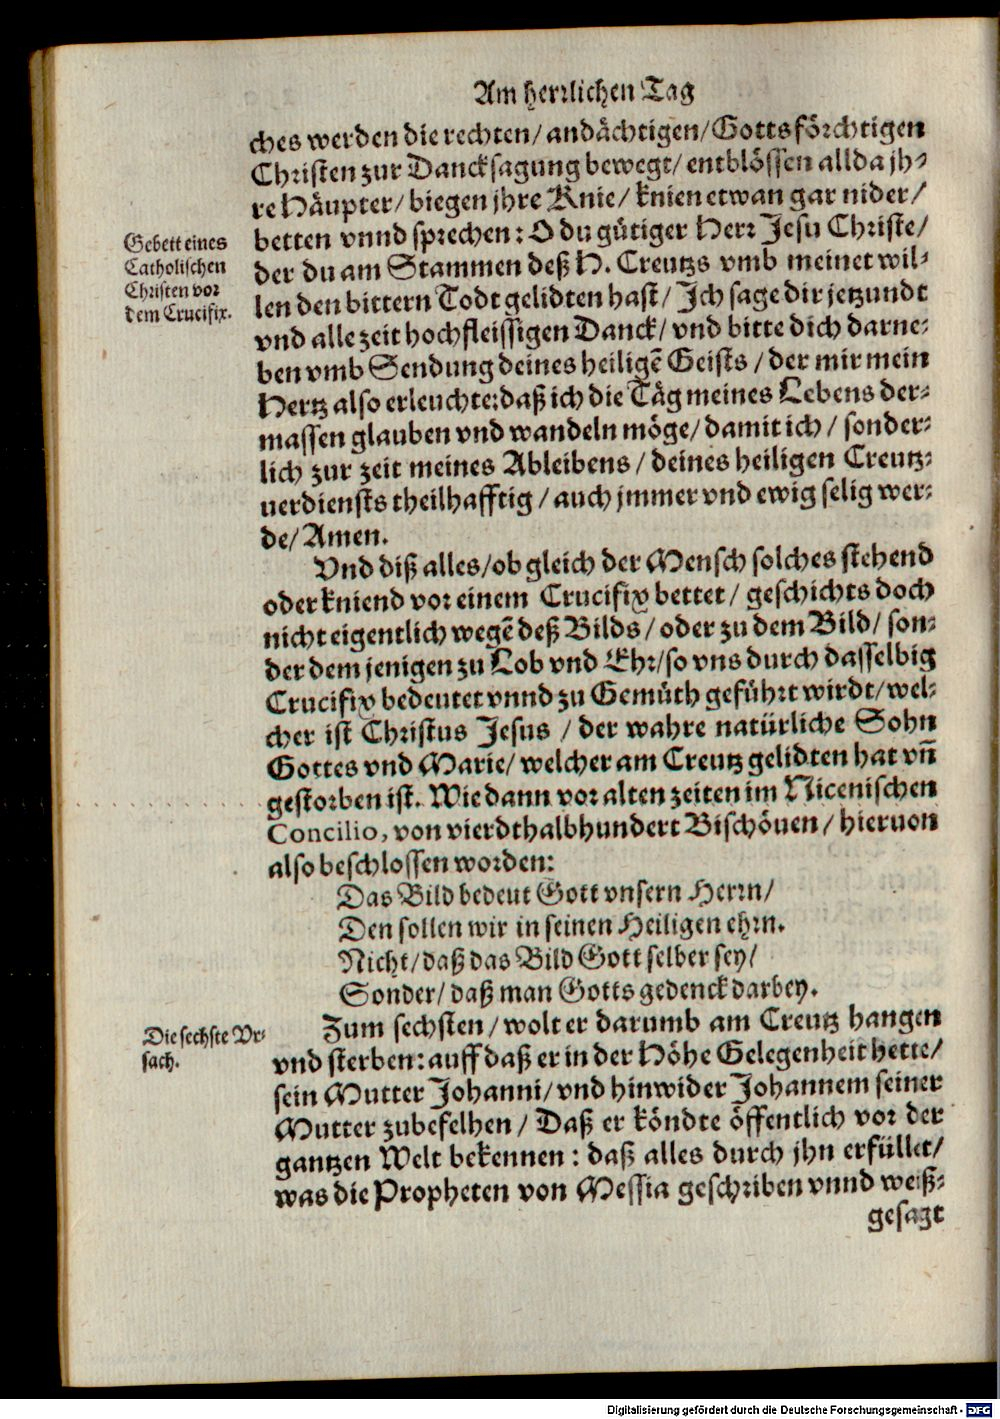 Am herrlichen Tag
ches werden die rechten/ andächtigen/ Gottsförchtigen
Christen zur Dancksagung bewegt/ entblössen allda jh-
re Häupter/ biegen jhre Knie/ knien etwan gar nider/
betten vnnd sprechen: O du gütiger Herr Jesu Christe/
der du am Stammen deß H. Creutzs vmb meinet wil-
len den bittern Todt gelidten hast/ Ich sage dir jetzundt
vnd alle zeit hochfleissigen Danck/ vnd bitte dich darne-
ben vmb Sendung deines heiligẽ Geists/ der mir mein
Hertz also erleuchte: daß ich die Täg meines Lebens der-
massen glauben vnd wandeln möge/ damit ich/ sonder-
lich zur zeit meines Ableibens/ deines heiligen Creutz-
uerdiensts theilhafftig/ auch jmmer vnd ewig selig wer-
de/ Amen.
Gebett eines
Catholischen
Christen vor
dem Crucifix.
Vnd diß alles/ ob gleich der Mensch solches stehend
oder kniend vor einem Crucifix bettet/ geschichts doch
nicht eigentlich wegẽ deß Bilds/ oder zu dem Bild/ son-
der dem jenigen zu Lob vnd Ehr/ so vns durch dasselbig
Crucifix bedeutet vnnd zu Gemüth geführt wirdt/ wel-
cher ist Christus Jesus / der wahre natürliche Sohn
Gottes vnd Marie/ welcher am Creutz gelidten hat vñ
gestorben ist. Wie dann vor alten zeiten im Nicenischen
Concilio, von vierdthalbhundert Bischöuen/ hieruon
also beschlossen worden:
Das Bild bedeut Gott vnsern Herrn/
Den sollen wir in seinen Heiligen ehrn.
Nicht/ daß das Bild Gott selber sey/
Sonder/ daß man Gotts gedenck darbey.
Die sechste Vr-
sach.
Zum sechsten/ wolt er darumb am Creutz hangen
vnd sterben: auff daß er in der Höhe Gelegenheit hette/
sein Mutter Johanni/ vnd hinwider Johannem seiner
Mutter zubefelhen/ Daß er köndte öffentlich vor der
gantzen Welt bekennen: daß alles durch jhn erfüllet/
was die Propheten von Messia geschriben vnnd weiß-
gesagt
Digitalisierung gefördert durch die Deutsche Forschungsgemeinschaft - DFG